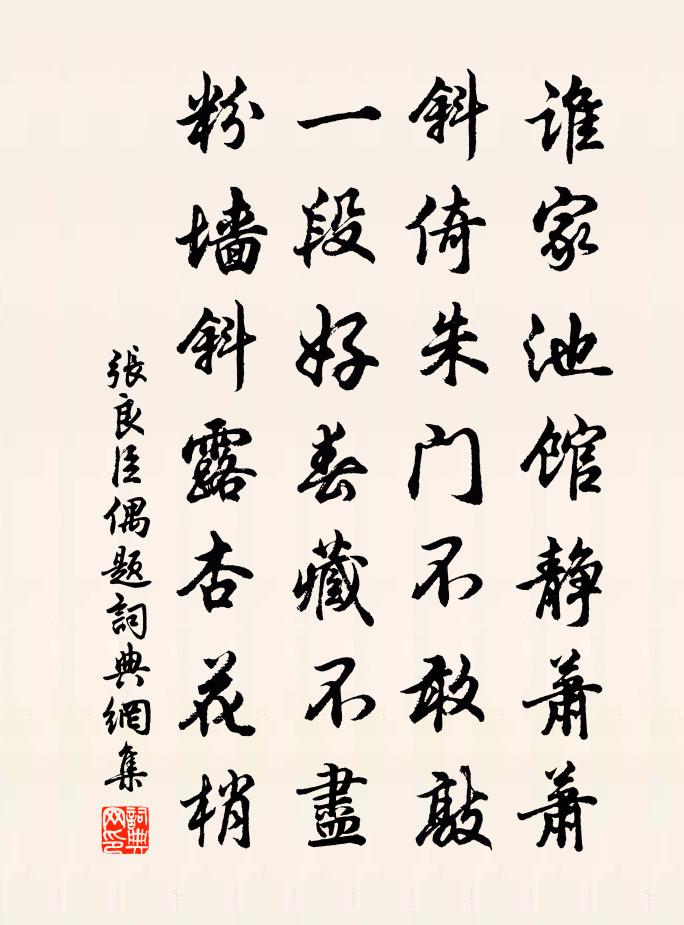 谁家池馆静萧萧
斜倚朱门不敢敲
一段好春藏不盡
粉墙斜露杏花梢
張良臣偶题詞典網集
詞典网印